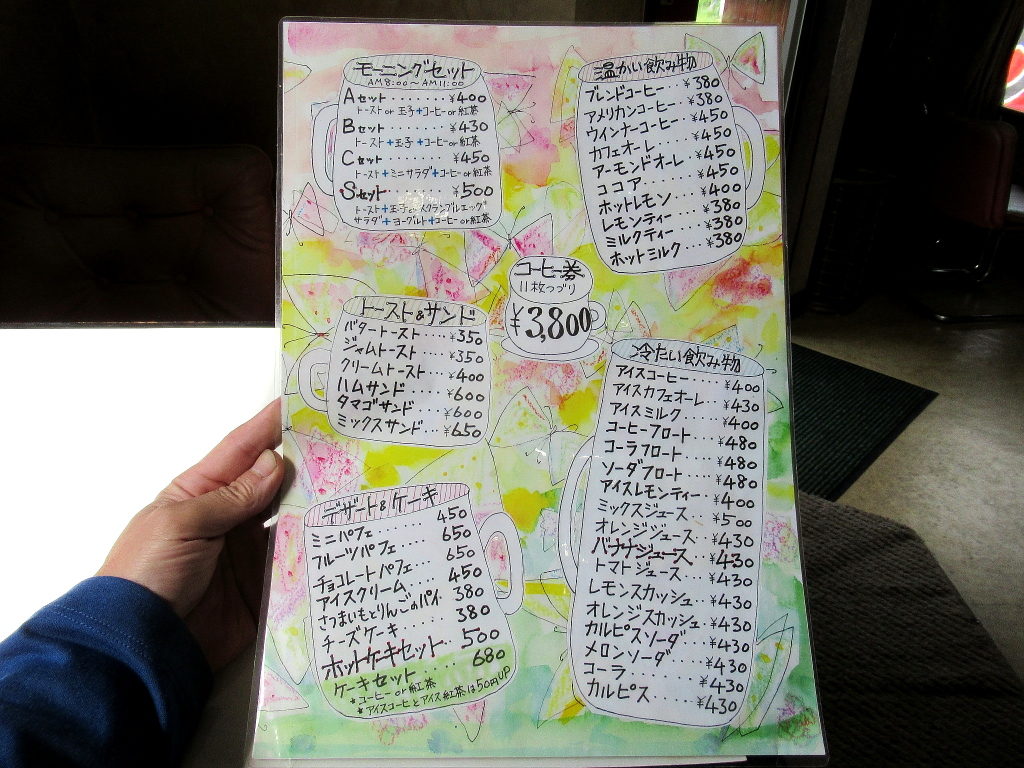 モーニングセット
AM8:00~AM11:00
Aセット.......¥400
トースト or 玉子+コーヒー or 紅茶
Bセット.......¥430
トースト+玉子+コーヒー or 紅茶
Cセット.......¥450
トースト+ミニサラダ+コーヒー or 紅茶
Sセット.......¥500
トースト+玉子orスクランブルエッグ
サラダ+ヨーグルト+コーヒー or 紅茶
温かい飲み物
ブレンドコーヒー..¥380
アメリカンコーヒー..¥380
ウインナーコーヒー..¥450
カフェオーレ...¥450
アーモンドオーレ..¥450
ココア.....¥450
ホットレモン...¥400
レモンティー...¥380
ミルクティー...¥380
ホットミルク...¥380
コーヒー券
11枚つづり
¥3,800
トースト&サンド
バタートースト...¥350
ジャムトースト...¥350
クリームトースト..¥400
ハムサンド....¥600
タマゴサンド...¥600
ミックスサンド...¥650
冷たい飲み物
アイスコーヒー....¥400
アイスカフェオーレ..¥430
アイスミルク....¥400
コーヒーフロート...¥480
コーラフロート....¥480
ソーダフロート....¥480
アイスレモンティー..¥400
ミックスジュース...¥500
オレンジジュース...¥430
バナナジュース....¥430
トマトジュース....¥430
レモンスカッシュ...¥430
オレンジスカッシュ..¥430
カルピスソーダ....¥430
メロンソーダ.....¥430
コーラ........¥430
カルピス.......¥430
デザート&ケーキ
ミニパフェ....450
フルーツパフェ...650
チョコレートパフェ..650
アイスクリーム...450
さつまいもとりんごのパイ.380
チーズケーキ....380
ホットケーキセット..500
ケーキセット....680
*コーヒー or 紅茶
*アイスコーヒとアイス紅茶は50円UP